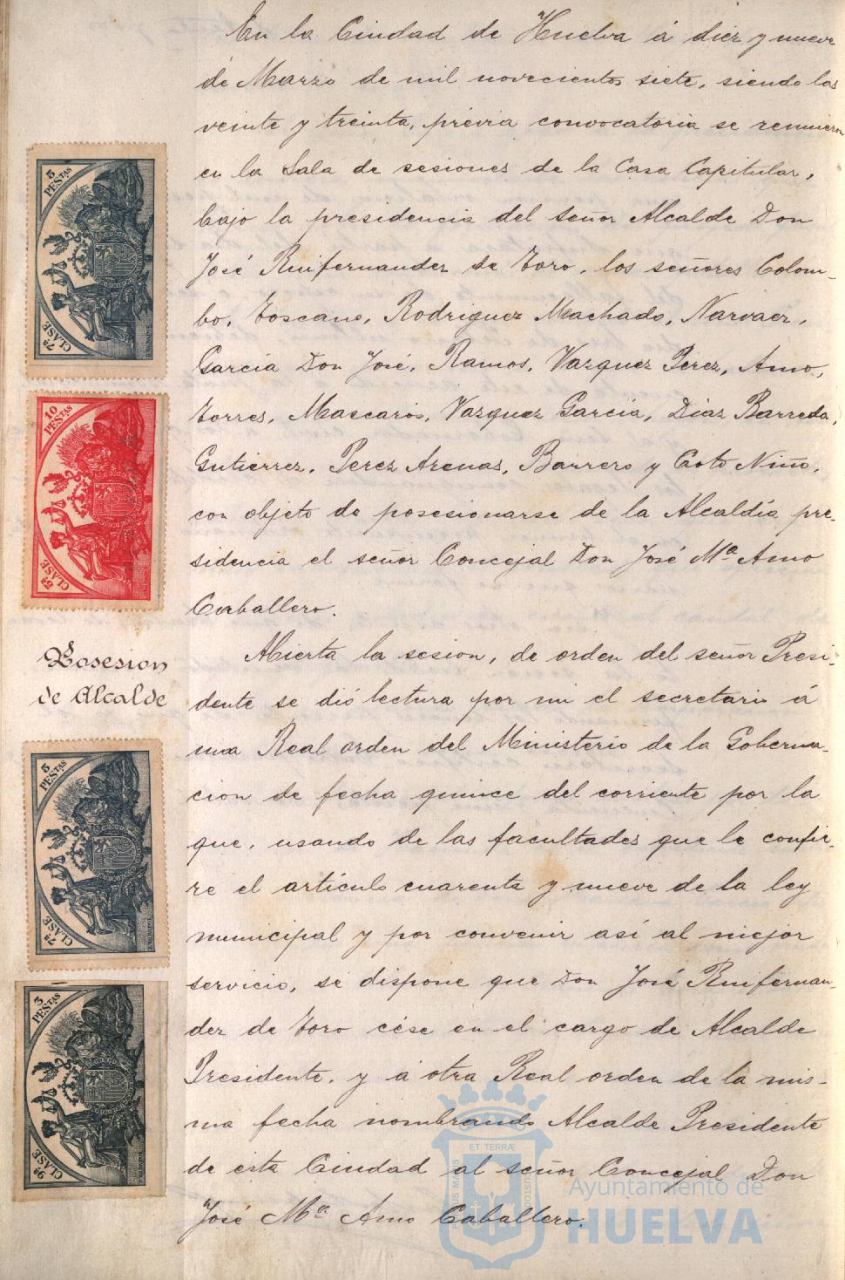 En la Ciudad de Huelva á diez y nueve
de Marzo de mil novecientos siete, siendo las
veinte y treinta, previa convocatoria se reunieron
en la Sala de sesiones de la Casa Capitular,
bajo la presidencia del señor Alcalde Don
José Ruifernandez de Toro, los señores Colom-
bo, Toscano, Rodriguez Machado, Narvaez,
Garcia Don José, Ramos, Vazquez Perez, Amo,
Torres, Mascarós, Vazquez Garcia, Diaz Barreda,
Gutierrez, Perez Arenas, Barrero y Coto Niño,
con objeto de posesionarse de la Alcaldía pre-
sidencia el señor Concejal Don José Mª Amo
Caballero.
Abierta la sesion, de orden del señor Presi-
dente se dió lectura por mi el secretario á
una Real orden del Ministerio de la Goberna-
cion de fecha quince del corriente por la
que, usando de las facultades que le confie-
re el artículo cuarenta y nueve de la ley
municipal y por convenir así al mejor
servicio, se dispone que Don José Ruifernan-
dez de Toro cése en el cargo de Alcalde
Presidente, y á otra Real orden de la mis-
ma fecha nombrando Alcalde Presidente
de esta Ciudad al señor Concejal Don
José Mª Amo Caballero.
5 PESTAS
7ª CLASE
10 PESTAS
5ª CLASE
Posesion
de Alcalde
5 PESTAS
7ª CLASE
3 PESTAS
9ª CLASE
ET TERRÆ
Ayuntamiento de
HUELVA